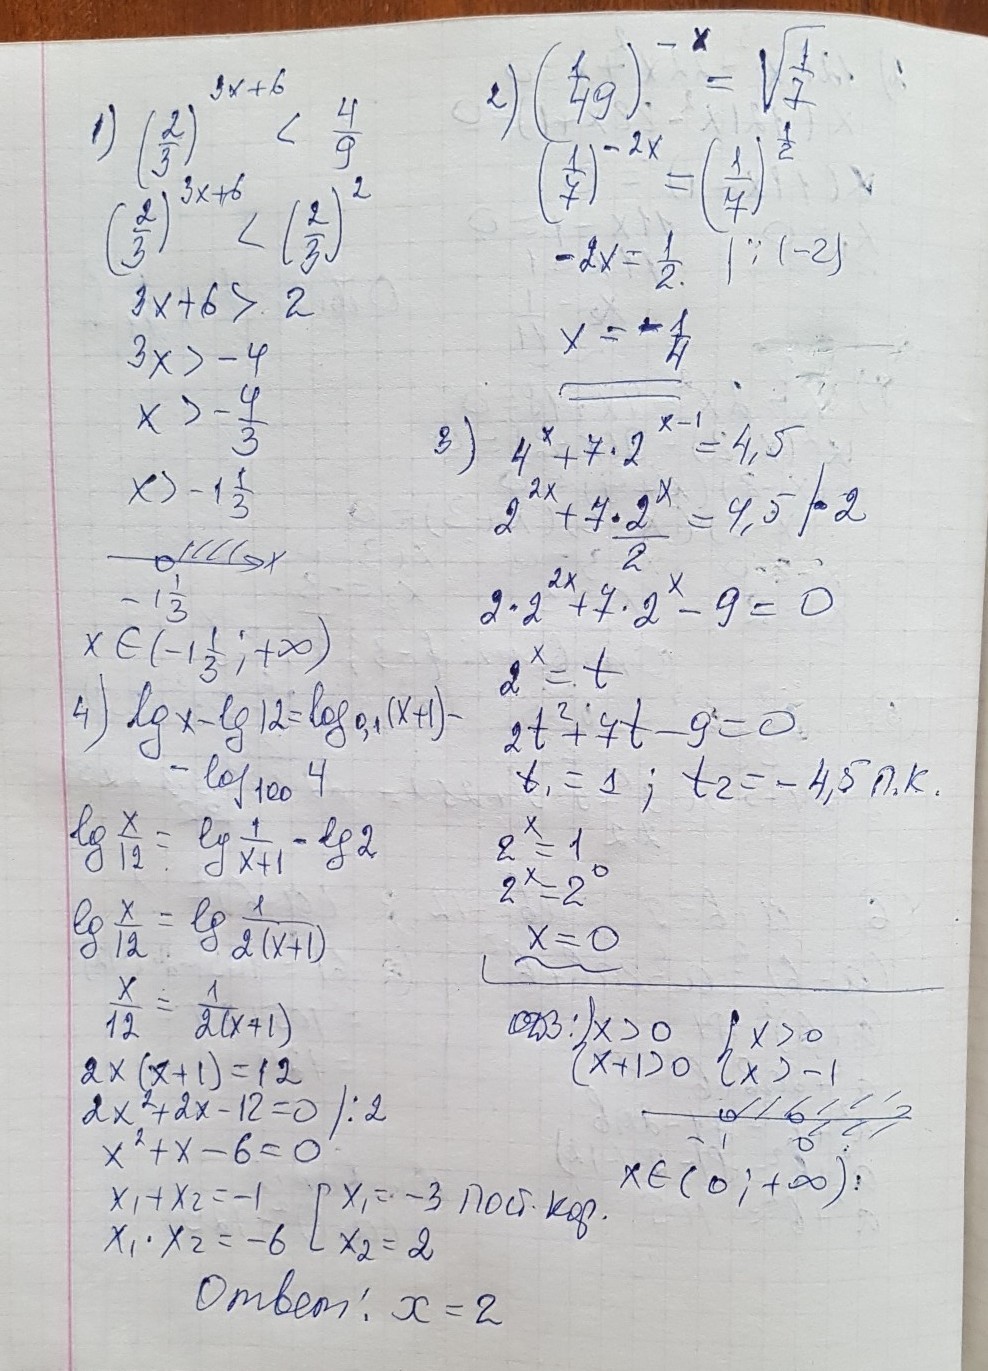 1) (2/3)^(3x+6) < 4/9
(2/3)^(3x+6) < (2/3)^2
3x+6 > 2
3x > -4
x > -4/3
x > -1 1/3
x
-1 1/3
x ∈ (-1 1/3; +∞)
2) (1/49)^(-x) = √(1/7)
(1/7)^(-2x) = (1/7)^(1/2)
-2x = 1/2 | : (-2)
x = -1/4
3) 4^x + 7·2^(x-1) = 4,5
2^(2x) + 7·2^x/2 = 4,5 |·2
2·2^(2x) + 7·2^x - 9 = 0
2^x = t
2t^2 + 7t - 9 = 0
t₁ = 1; t₂ = -4,5 п.к.
2^x = 1
2^x = 2^0
x = 0
4) lg x - lg 12 = log_0,1 (x+1) -
- log_100 4
lg x/12 = lg 1/(x+1) - lg 2
lg x/12 = lg 1/(2(x+1))
x/12 = 1/(2(x+1))
2x(x+1) = 12
2x^2 + 2x - 12 = 0 |:2
x^2 + x - 6 = 0
x₁ + x₂ = -1 [ x₁ = -3 пост. кор.
x₁ · x₂ = -6 [ x₂ = 2
Ответ: x = 2
ОДЗ: { x > 0 { x > 0
{ x+1 > 0 { x > -1
-1 0
x ∈ (0; +∞)